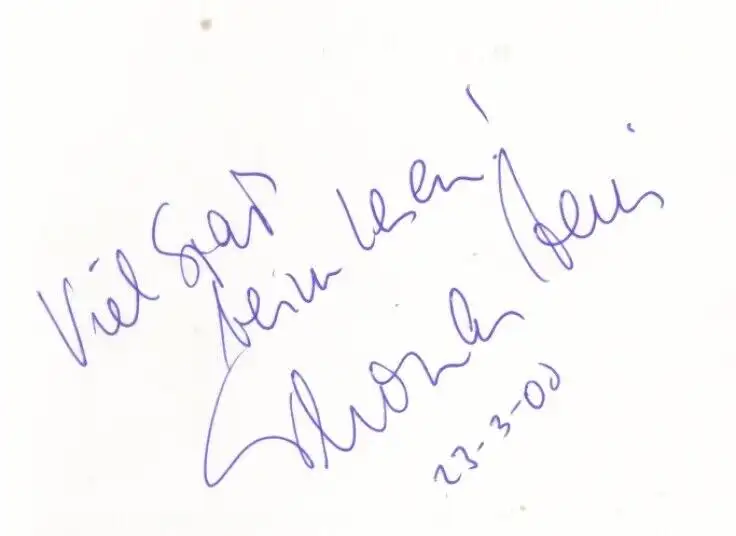 Viel Spaß
beim Lesen!
23-3-00